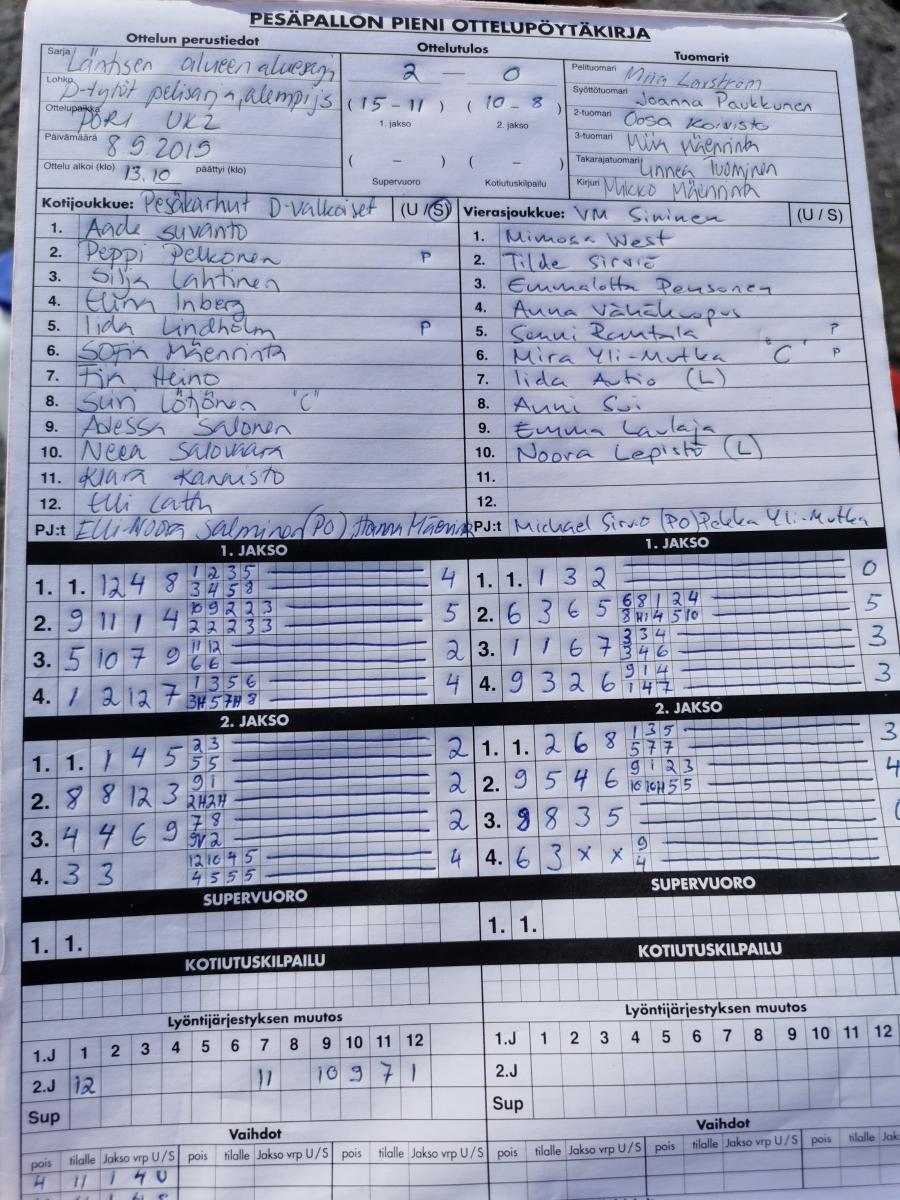 PESÄPALLON PIENI OTTELUPÖYTÄKIRJA
Ottelun perustiedot
Sarja Läntisen alueen aluesarj
Lohko D-tytöt pelisarja, alempi js
Ottelupaikka PORI UK2
Päivämäärä 8.9.2019
Ottelu alkoi (klo) 13.10 päättyi (klo)
Ottelutulos
2 — 0
( 15 - 11 ) ( 10 - 8 )
1. jakso 2. jakso
( - ) ( - )
Supervuoro Kotiutuskilpailu
Tuomarit
Pelituomari Miia Lovström
Syöttötuomari Joanna Paukkunen
2-tuomari Oosa Koivisto
3-tuomari Miia Mäenrinta
Takarajatuomari Linnea Tuominen
Kirjuri Mikko Mäenrinta
Kotijoukkue: Pesäkarhut D-Valkoiset (U / S)
1. Aada Suvanto
2. Peppi Pelkonen P
3. Silja Lahtinen
4. Elina Inberg
5. Iida Lindholm P
6. Sofia Mäenrinta
7. Fia Heino
8. Suvi Löytönen "C"
9. Adessa Salonen
10. Neea Salovaara
11. Klara Kannisto
12. Elli Lath
PJ:t Elli-Noora Salminen (PO), Hannu Mäenrinta
Vierasjoukkue: VM Sininen (U / S)
1. Mimosa West
2. Tilde Sirviö
3. Emmalotta Pensonen
4. Anna Vähäkuopus
5. Sonni Rantala P
6. Mira Yli-Mutka "C" P
7. Iida Autio (L)
8. Anni Sui
9. Emma Laulaja
10. Noora Lepistö (L)
11.
12.
PJ:t Michael Sirviö (PO) Pekka Yli-Mutka
1. JAKSO
1. 1. 12 4 8 1 2 3 5 4
3 4 5 8
2. 9 11 1 4 10 9 2 2 3 5
2 2 2 3 3
3. 5 10 7 9 11 12 2
6 6
4. 1 2 12 7 1 3 5 6 4
3H 5 7H 8
1. JAKSO
1. 1. 1 3 2 0
2. 6 3 6 5 6 8 1 2 4 5
8 H1 4 5 10
3. 1 1 6 7 3 3 4 3
3 4 6
4. 9 3 2 6 9 1 4 3
1 4 7
2. JAKSO
1. 1. 1 4 5 2 3 2
5 5
2. 8 8 12 3 9 1 2
2H 2H
3. 4 4 6 9 7 8 2
9V 2
4. 3 3 12 10 4 5 4
4 5 5 5
2. JAKSO
1. 1. 2 6 8 1 3 5 3
5 7 7
2. 9 5 4 6 9 1 2 3 4
10 10H 5 5
3. 9 8 3 5
4. 6 3 x x 9
4
SUPERVUORO
1. 1.
SUPERVUORO
1. 1.
KOTIUTUSKILPAILU
KOTIUTUSKILPAILU
Lyöntijärjestyksen muutos
1.J 1 2 3 4 5 6 7 8 9 10 11 12
2.J 12 11 10 9 7 1
Sup
Lyöntijärjestyksen muutos
1.J 1 2 3 4 5 6 7 8 9 10 11 12
2.J
Sup
Vaihdot
pois tilalle Jakso vrp U / S pois tilalle Jakso vrp U / S pois tilalle Jakso vrp U / S
4 11 1 4 U
Vaihdot
pois tilalle Jakso vrp U / S pois tilalle Jakso vrp U / S pois tilalle Jak